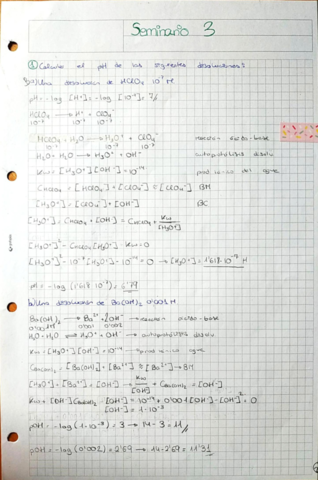 Seminario 3
① Calcular el pH de las siguientes disoluciones:
a) Una disolucion de HClO₄ 10⁻⁷ M
pH = -log [H⁺] = -log [10⁻⁷] = 7
HClO₄ → H⁺ + ClO₄⁻
10⁻⁷ 10⁻⁷ 10⁻⁷
HClO₄ + H₂O → H₃O⁺ + ClO₄⁻ reacción acido-base
10⁻⁷ 10⁻⁷ 10⁻⁷
H₂O + H₂O → H₃O⁺ + OH⁻ autoprotolisis disolv
Kw = [H₃O⁺] [OH⁻] = 10⁻¹⁴
C_HClO₄ = [HClO₄] + [ClO₄⁻] = [ClO₄⁻] BM
[H₃O⁺] = [ClO₄⁻] + [OH⁻] BC
[H₃O⁺] = C_HClO₄ + [OH] = C_HClO₄ + Kw/[H₃O⁺]
[H₃O⁺]² - C_HClO₄ [H₃O⁺] - Kw = 0
[H₃O⁺]² - 10⁻⁷ [H₃O⁺] - 10⁻¹⁴ = 0 → [H₃O⁺] = 1'618·10⁻⁷ M
pH = -log (1'618·10⁻⁷) = 6'79
b) Una disolucion de Ba(OH)₂ 0'001 M
Ba(OH)₂ → Ba²⁺ + 2OH⁻ → reacción acido-base
0'001 M 0'001 0'002
H₂O + H₂O → H₃O⁺ + OH⁻ → autoprotolisis disolv
Kw = [H₃O⁺] [OH⁻] = 10⁻¹⁴
C_Ba(OH)₂ = [Ba(OH)₂] + [Ba²⁺] = [Ba²⁺] → BM
[H₃O⁺] + [Ba²⁺] = [OH⁻] → Kw/[OH⁻] + C_Ba(OH)₂ = [OH⁻]
Kw + [OH⁻] C_Ba(OH)₂ - [OH⁻]² = 10⁻¹⁴ + 0'001 [OH⁻] - [OH⁻]² = 0
[OH⁻] = 1·10⁻³
pOH = -log (1·10⁻³) = 3 → 14 - 3 = 11
pOH = -log (0'002) = 2'69 → 14 - 2'69 = 11'31